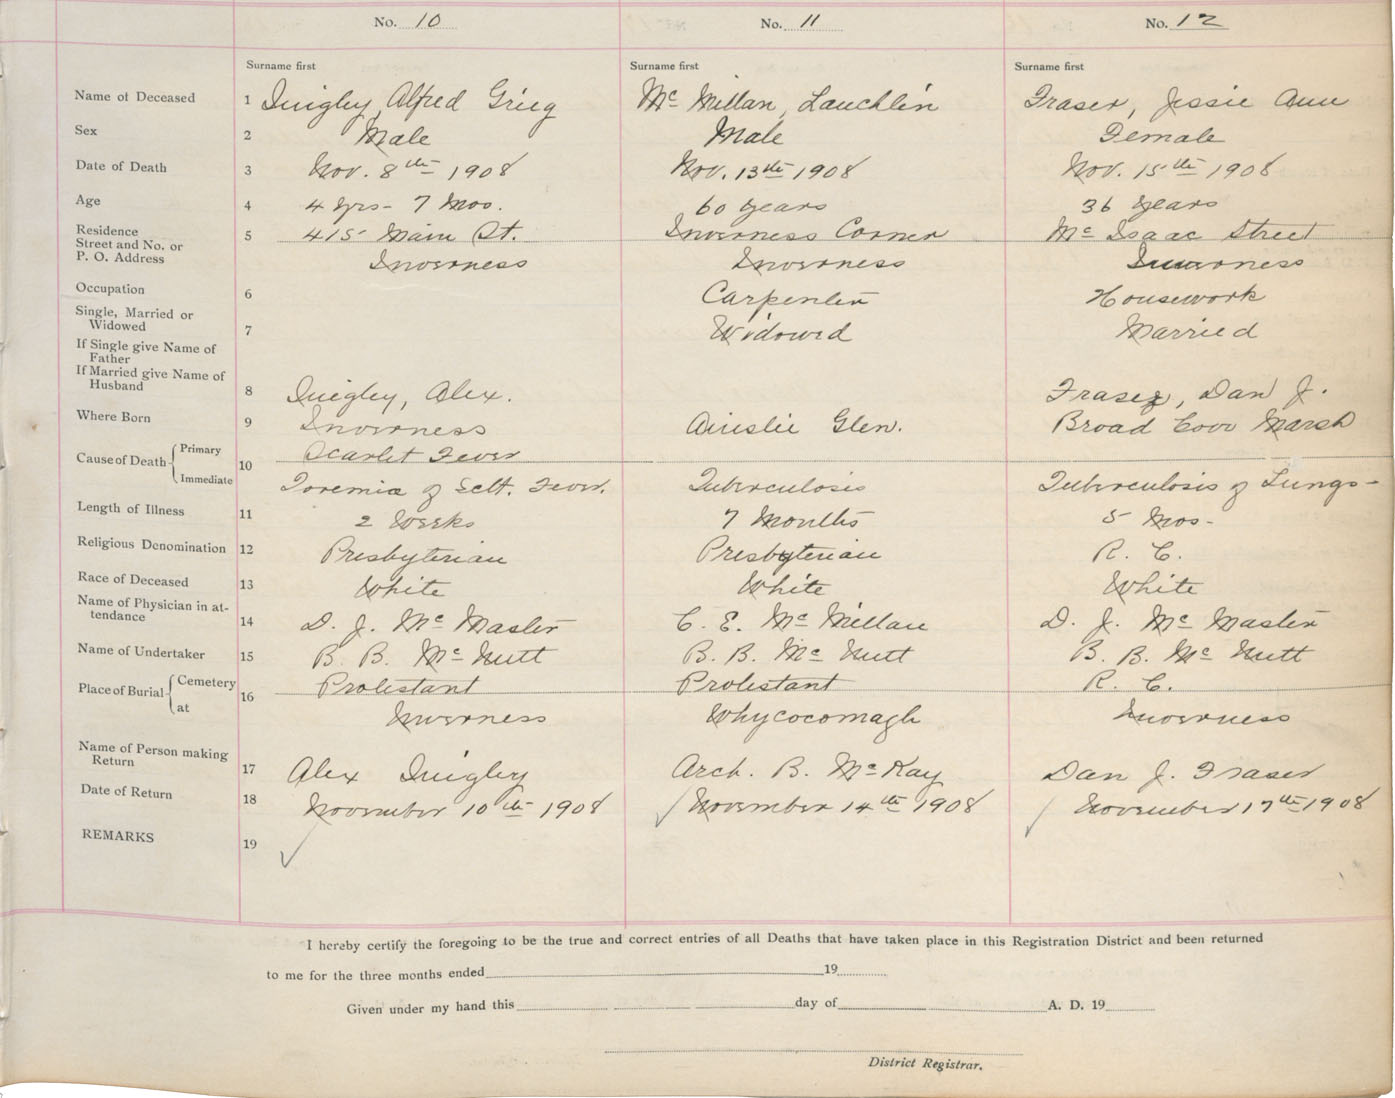 No. 10 No. 11 No. 12
Surname first Surname first Surname first
Name of Deceased 1 Quigley, Alfred Grieg Mc Millan, Lauchlin Fraser, Jessie Ann
Sex 2 Male Male Female
Date of Death 3 Nov. 8th 1908 Nov. 13th 1908 Nov. 15th 1908
Age 4 4 yrs - 7 Mos. 60 years 36 years
Residence
Street and No. or 5 415 Main St. Inverness Corner Mc Isaac Street
P. O. Address Inverness Inverness Inverness
Occupation 6 Carpenter Housework
Single, Married or
Widowed 7 Widowed Married
If Single give Name of
Father
If Married give Name of
Husband 8 Quigley, Alex. Fraser, Dan J.
Where Born 9 Inverness Ainslie Glen. Broad Cove Marsh
Cause of Death Primary 10 Scarlet Fever
Immediate Toremia of Sclt. Fever. Tuberculosis Tuberculosis of Lungs -
Length of Illness 11 2 Weeks 7 Months 5 Mos -
Religious Denomination 12 Presbyterian Presbyterian R. C.
Race of Deceased 13 White White White
Name of Physician in at-
tendance 14 D. J. Mc Master C. E. Mc Millan D. J. Mc Master
Name of Undertaker 15 B. B. Mc Nutt B. B. Mc Nutt B. B. Mc Nutt
Place of Burial Cemetery 16 Protestant Protestant R. C.
at Inverness Whycocomagh Inverness
Name of Person making
Return 17 Alex Quigley Arch. B. McKay Dan J. Fraser
Date of Return 18 November 10th 1908 November 14th 1908 November 17th 1908
REMARKS 19
I hereby certify the foregoing to be the true and correct entries of all Deaths that have taken place in this Registration District and been returned
to me for the three months ended 19
Given under my hand this day of A. D. 19
District Registrar.